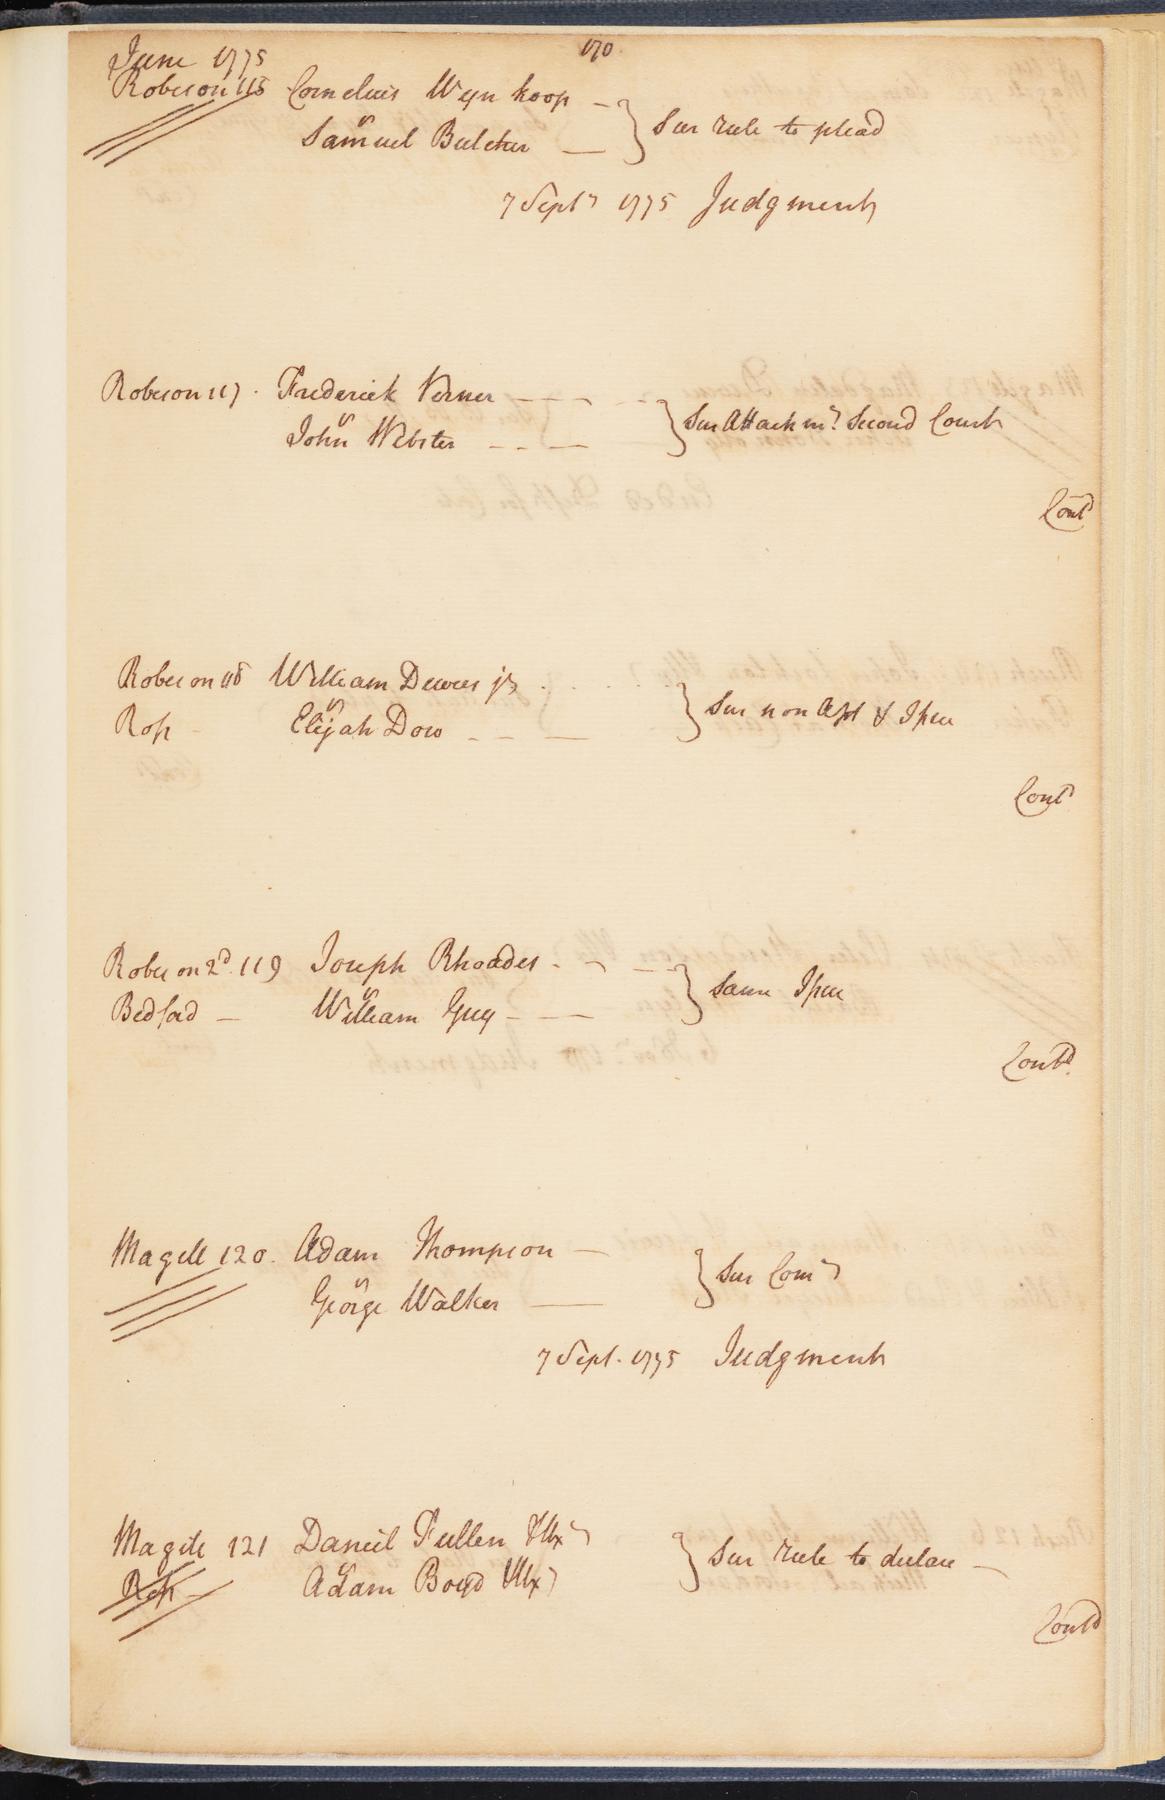 170
June 1775
Robeson 115 Cornelius Wynkoop
vs
Samuel Butcher } Sur rule to plead
7 Sept 1775 Judgment
Robeson 117 Frederick Verner
vs
John Webster } Sur Attachmt Second Court
Contd
Robeson 118 William Dewees jr
vs
Ross Elijah Dow } Sur non Asst & Issue
Contd
Robeson 2d 119 Joseph Rhoades
vs
Bedford William Guy } Same Issue
Contd
Magill 120 Adam Thompson
vs
George Walker } Sur Com
7 Sept. 1775 Judgment
Magill 121 Daniel Fullen & Ux
vs
Ross Adam Boyd & Ux } Sur rule to declare
Contd